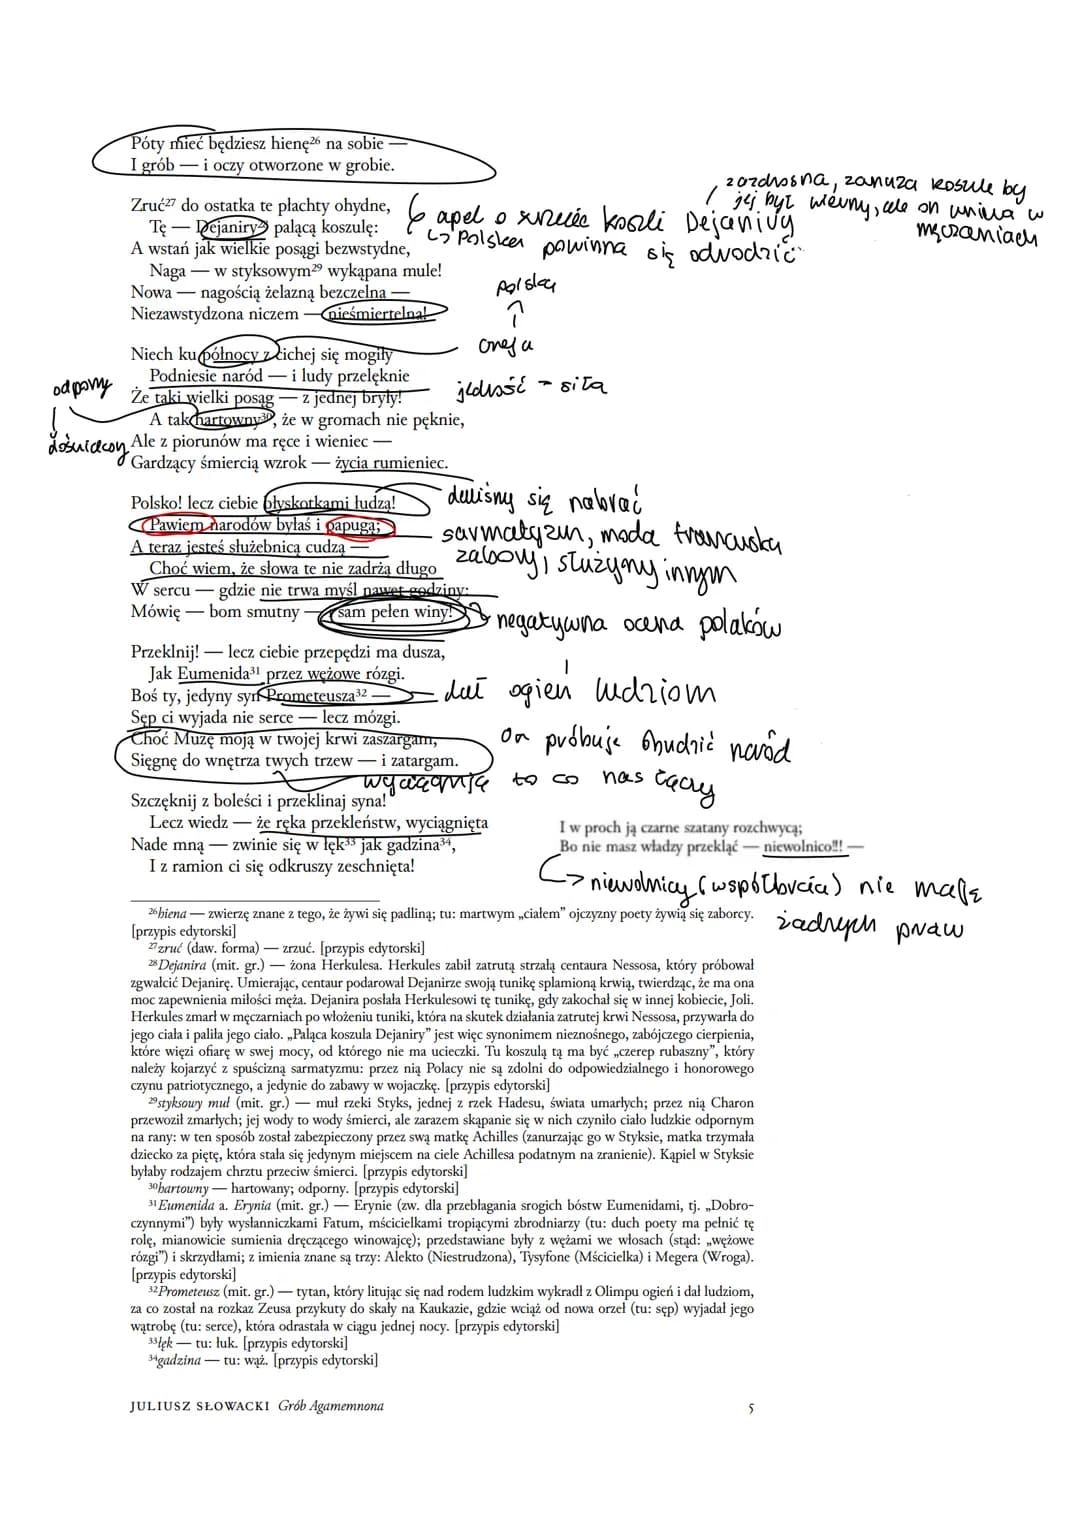 Póty mieć będziesz hienę²⁶ na sobie —
I grób — i oczy otworzone w grobie.
Zruć²⁷ do ostatka te płachty ohydne,
Tę — Dejaniry²⁸ palącą koszulę:
A wstań jak wielkie posągi bezwstydne,
Naga — w styksowym²⁹ wykąpana mule!
Nowa — nagością żelazną bezczelna —
Niezawstydzona niczem — nieśmiertelna!
zazdrosna, zanurza koszule by
jej był wierny, ale on umiera w
męczarniach
apel o zrzucenie koszuli Dejaniry
↳ Polska powinna się odrodzić
Polska
↑
ona
Niech ku północy z cichej się mogiły
Podniesie naród — i ludy przelęknie
Że taki wielki posąg — z jednej bryły!
A tak hartowny³⁰, że w gromach nie pęknie,
Ale z piorunów ma ręce i wieniec —
Gardzący śmiercią wzrok — życia rumieniec.
jedność - siła
odporny
Polsko! lecz ciebie błyskotkami łudzą!
Pawiem narodów byłaś i papugą;
A teraz jesteś służebnicą cudzą —
Choć wiem, że słowa te nie zadrżą długo
W sercu — gdzie nie trwa myśl nawet godziny:
Mówię — bom smutny — i sam pełen winy!
daliśmy się nabrać
sarmatyzm, moda francuska
zabory, służymy innym
negatywna ocena polaków
Przeklnij! — lecz ciebie przepędzi ma dusza,
Jak Eumenida³¹ przez wężowe rózgi.
Boś ty, jedyny syn Prometeusza³² —
Sęp ci wyjada nie serce — lecz mózgi.
Choć Muzę moją w twojej krwi zaszargam,
Sięgnę do wnętrza twych trzew — i zatargam.
dał ogień ludziom
on próbuje obudzić naród
wyciągnie to co nas łączy
Szczęknij z boleści i przeklinaj syna!
Lecz wiedz — że ręka przekleństw, wyciągnięta
Nade mną — zwinie się w łęk³³ jak gadzina³⁴,
I z ramion ci się odkruszy zeschnięta!
I w proch ją czarne szatany rozchwycą;
Bo nie masz władzy przekląć — niewolnico!!! —
↳ niewolnicy (współtwórcia) nie mają
żadnych praw
²⁶hiena — zwierzę znane z tego, że żywi się padliną; tu: martwym „ciałem” ojczyzny poety żywią się zaborcy.
[przypis edytorski]
²⁷zruć (daw. forma) — zrzuć. [przypis edytorski]
²⁸Dejanira (mit. gr.) — żona Herkulesa. Herkules zabił zatrutą strzałą centaura Nessosa, który próbował
zgwałcić Dejanirę. Umierając, centaur podarował Dejanirze swoją tunikę splamioną krwią, twierdząc, że ma ona
moc zapewnienia miłości męża. Dejanira posłała Herkulesowi tę tunikę, gdy zakochał się w innej kobiecie, Joli.
Herkules zmarł w męczarniach po włożeniu tuniki, która na skutek działania zatrutej krwi Nessosa, przywarła do
jego ciała i paliła jego ciało. „Paląca koszula Dejaniry” jest więc synonimem nieznośnego, zabójczego cierpienia,
które więzi ofiarę w swej mocy, od którego nie ma ucieczki. Tu koszulą tą ma być „czerep rubaszny”, który
należy kojarzyć z spuścizną sarmatyzmu: przez nią Polacy nie są zdolni do odpowiedzialnego i honorowego
czynu patriotycznego, a jedynie do zabawy w wojaczkę. [przypis edytorski]
²⁹styksowy muł (mit. gr.) — muł rzeki Styks, jednej z rzek Hadesu, świata umarłych; przez nią Charon
przewoził zmarłych; jej wody to wody śmierci, ale zarazem skąpanie się w nich czyniło ciało ludzkie odpornym
na rany: w ten sposób został zabezpieczony przez swą matkę Achilles (zanurzając go w Styksie, matka trzymała
dziecko za piętę, która stała się jedynym miejscem na ciele Achillesa podatnym na zranienie). Kąpiel w Styksie
byłaby rodzajem chrztu przeciw śmierci. [przypis edytorski]
³⁰hartowny — hartowany; odporny. [przypis edytorski]
³¹Eumenida a. Erynia (mit. gr.) — Erynie (zw. dla przebłagania srogich bóstw Eumenidami, tj. „Dobro-
czynnymi”) były wysłanniczkami Fatum, mścicielkami tropiącymi zbrodniarzy (tu: duch poety ma pełnić tę
rolę, mianowicie sumienia dręczącego winowajcę); przedstawiane były z wężami we włosach (stąd: „wężowe
rózgi”) i skrzydłami; z imienia znane są trzy: Alekto (Niestrudzona), Tysyfone (Mścicielka) i Megera (Wroga).
[przypis edytorski]
³²Prometeusz (mit. gr.) — tytan, który litując się nad rodem ludzkim wykradł z Olimpu ogień i dał ludziom,
za co został na rozkaz Zeusa przykuty do skały na Kaukazie, gdzie wciąż od nowa orzeł (tu: sęp) wyjadał jego
wątrobę (tu: serce), która odrastała w ciągu jednej nocy. [przypis edytorski]
³³łęk — tu: łuk. [przypis edytorski]
³⁴gadzina — tu: wąż. [przypis edytorski]
JULIUSZ SŁOWACKI Grób Agamemnona
5